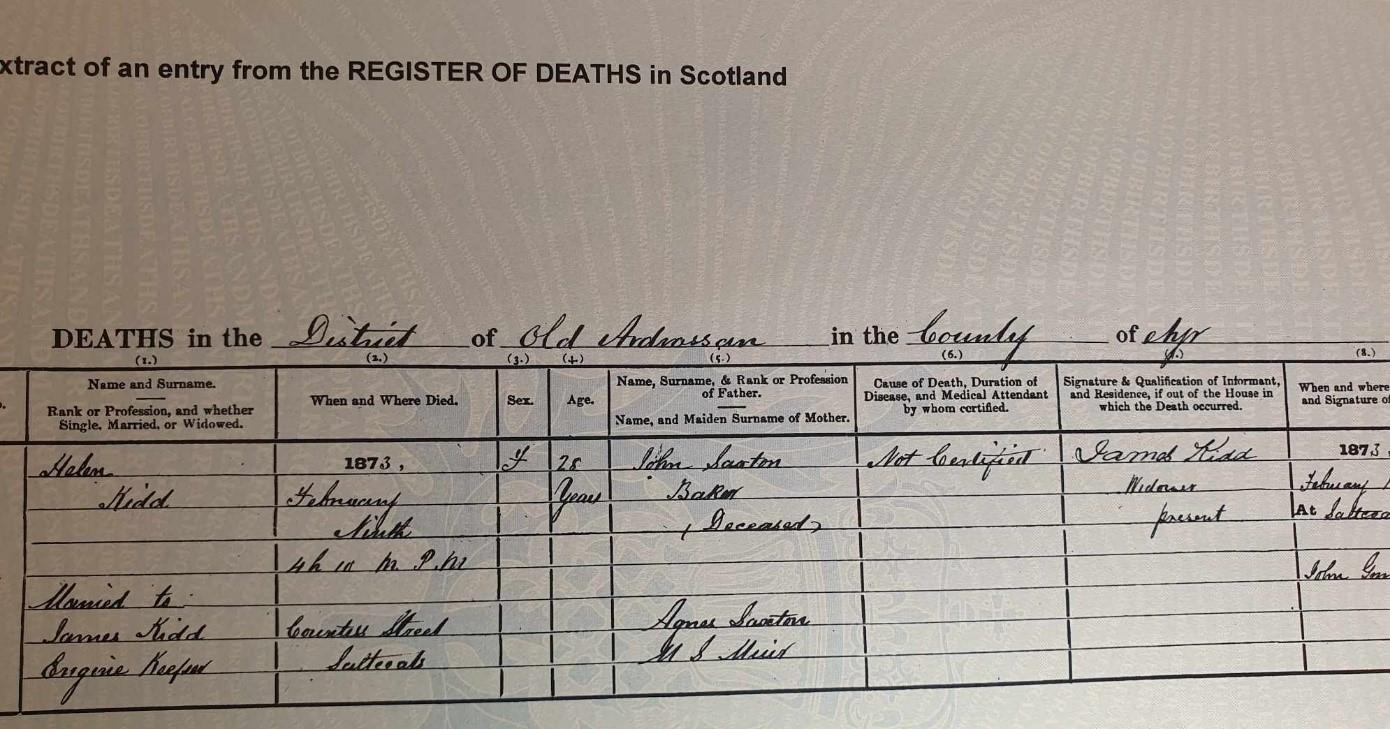 xtract of an entry from the REGISTER OF DEATHS in Scotland
DEATHS in the District of Old Ardrossan in the County of Ayr
(1.) (2.) (3.) (4.) (5.) (6.) (7.) (8.)
Name and Surname.
Rank or Profession, and whether
Single, Married, or Widowed.
When and Where Died.
Sex.
Age.
Name, Surname, & Rank or Profession
of Father.
Name, and Maiden Surname of Mother.
Cause of Death, Duration of
Disease, and Medical Attendant
by whom certified.
Signature & Qualification of Informant,
and Residence, if out of the House in
which the Death occurred.
When and where
and Signature of
Helen
Kidd
Married to
James Kidd
Engine Keeper
1873,
February
Ninth
4h 10 m. P.M
Countess Street
Saltcoats
F
28
Years
John Saxton
Baker
(Deceased)
Agnes Saxton
M S Muir
Not Certified
James Kidd
Widower
present
1873,
February 1
At Saltcoa
John